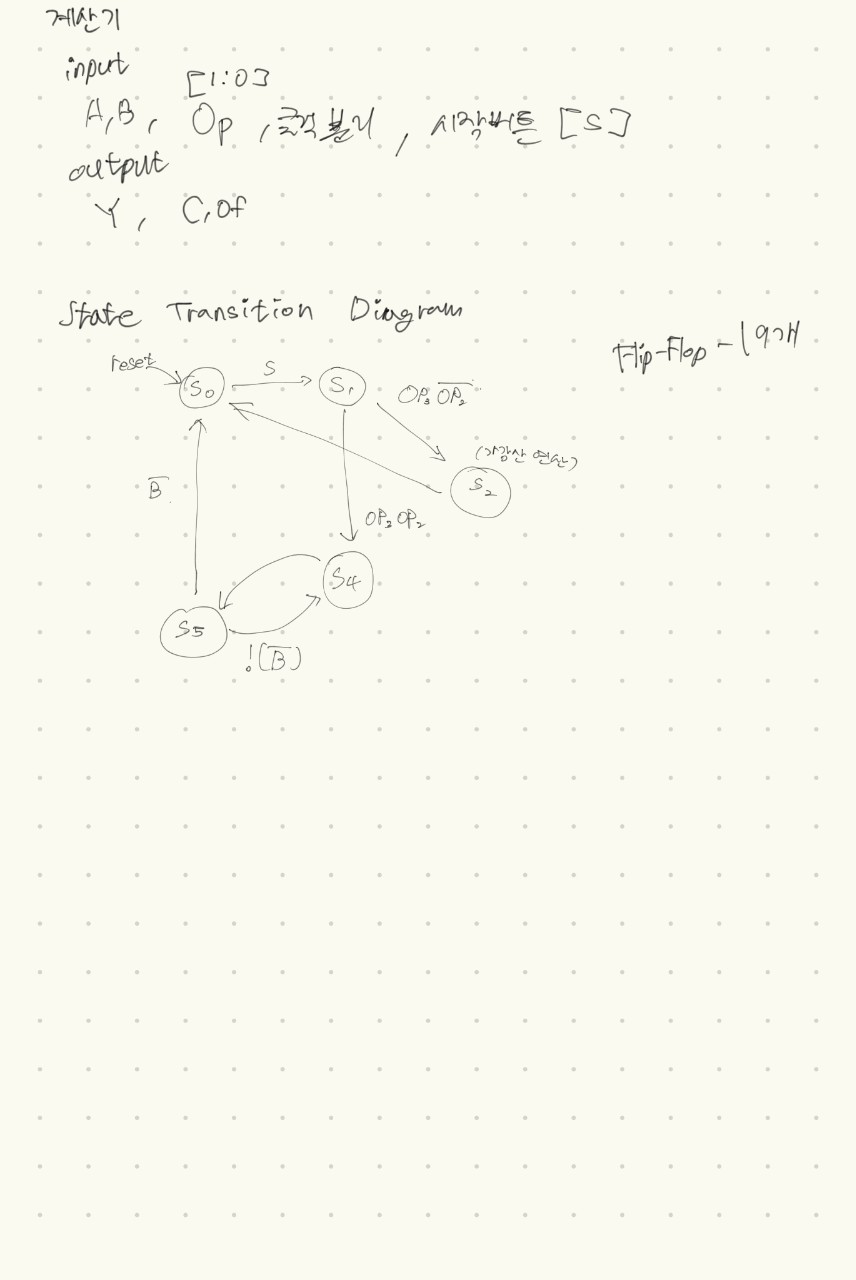 계산기
input
[1:0]
A,B, Op , 클럭 분리 , 시작버튼 [S]
output
Y, C, Of
State Transition Diagram
Flip-Flop - 19개
reset
S0
S
S1
OP₃ O̅P̅₂̅
(가감산 연산)
S2
B̅
OP₃ OP₂
S4
S5
!(B̅)